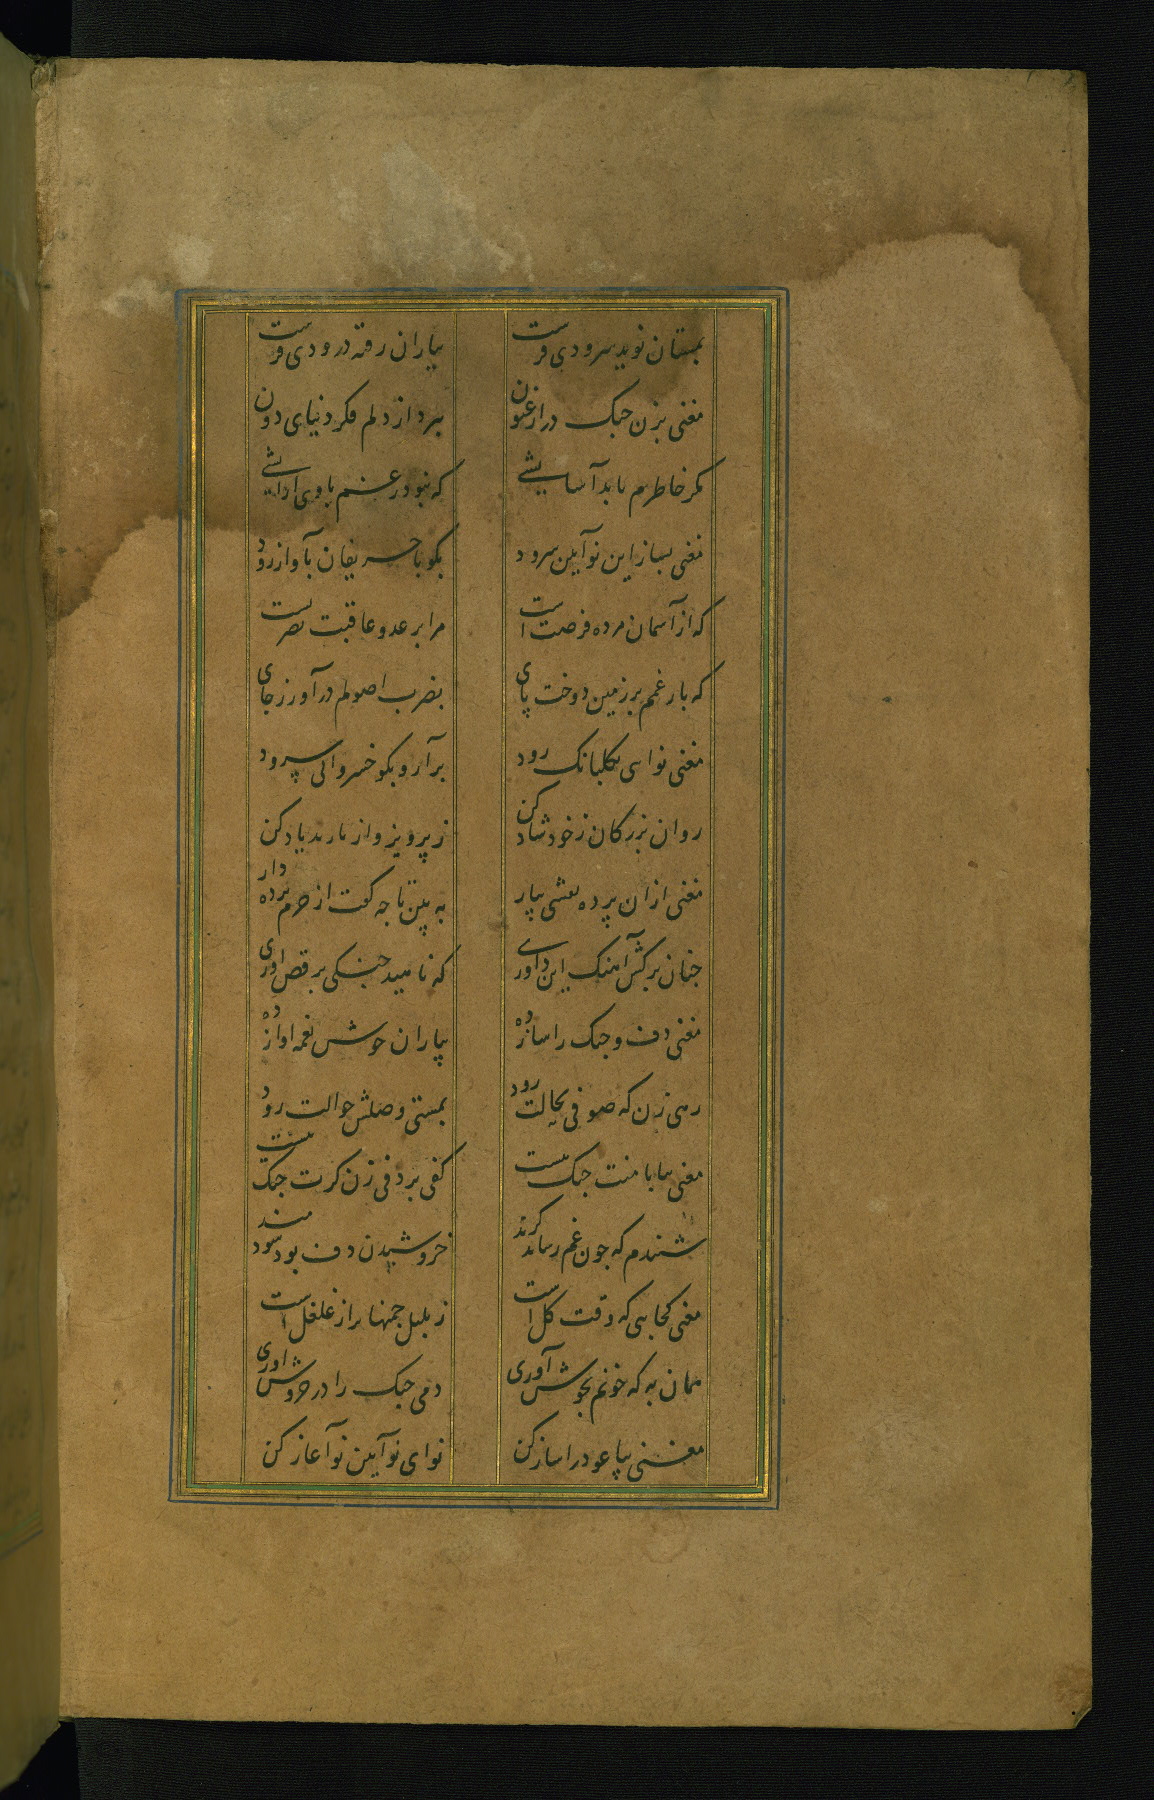 بمستان نوید سرودی فرست
بیاران رفته درودی فرست
مغنی بزن چنک در ارغنون
ببر از دلم فکر دنیای دون
مکر خاطرم یابد آسایشی
که نبود ز غم با وی
مغنی بساز این نوآیین سرود
بکو با حریفان بآواز رود
که از آسمان مژده فرصت است
مرا بر عدو عاقبت نصرت است
که بار غمم بر زمین دوخت پای
بضرب اصولم درآور ز جای
مغنی نوایی بکلبانک رود
برآر و بکو خسروانی سرود
روان بزرکان ز خود شاد کن
ز پرویز و از باربد یاد کن
مغنی از ان پرده نقشی بیار
به بین تا چه کفت از حرم پرده دار
چنان برکش آهنک این داوری
که ناهید چنکی برقص اوری
مغنی دف و چنک را ساز ده
بیاران خوش نغمه اواز ده
رهی زن که صوفی بحالت رود
بمستی وصلش حوالت رود
مغنی بیا با منت جنک نیست
کفی بر دفی زن کرت چنک نیست
شنیدم که چون غم رساند کزند
خروشیدن دف بود سودمند
مغنی کجایی که وقت کل است
ز بلبل چمنها پر از غلغل است
همان به که خونم بجوش آوری
دمی چنک را در خروش اوری
مغنی بیا عود را ساز کن
نوای نوآیین نو آغاز کن